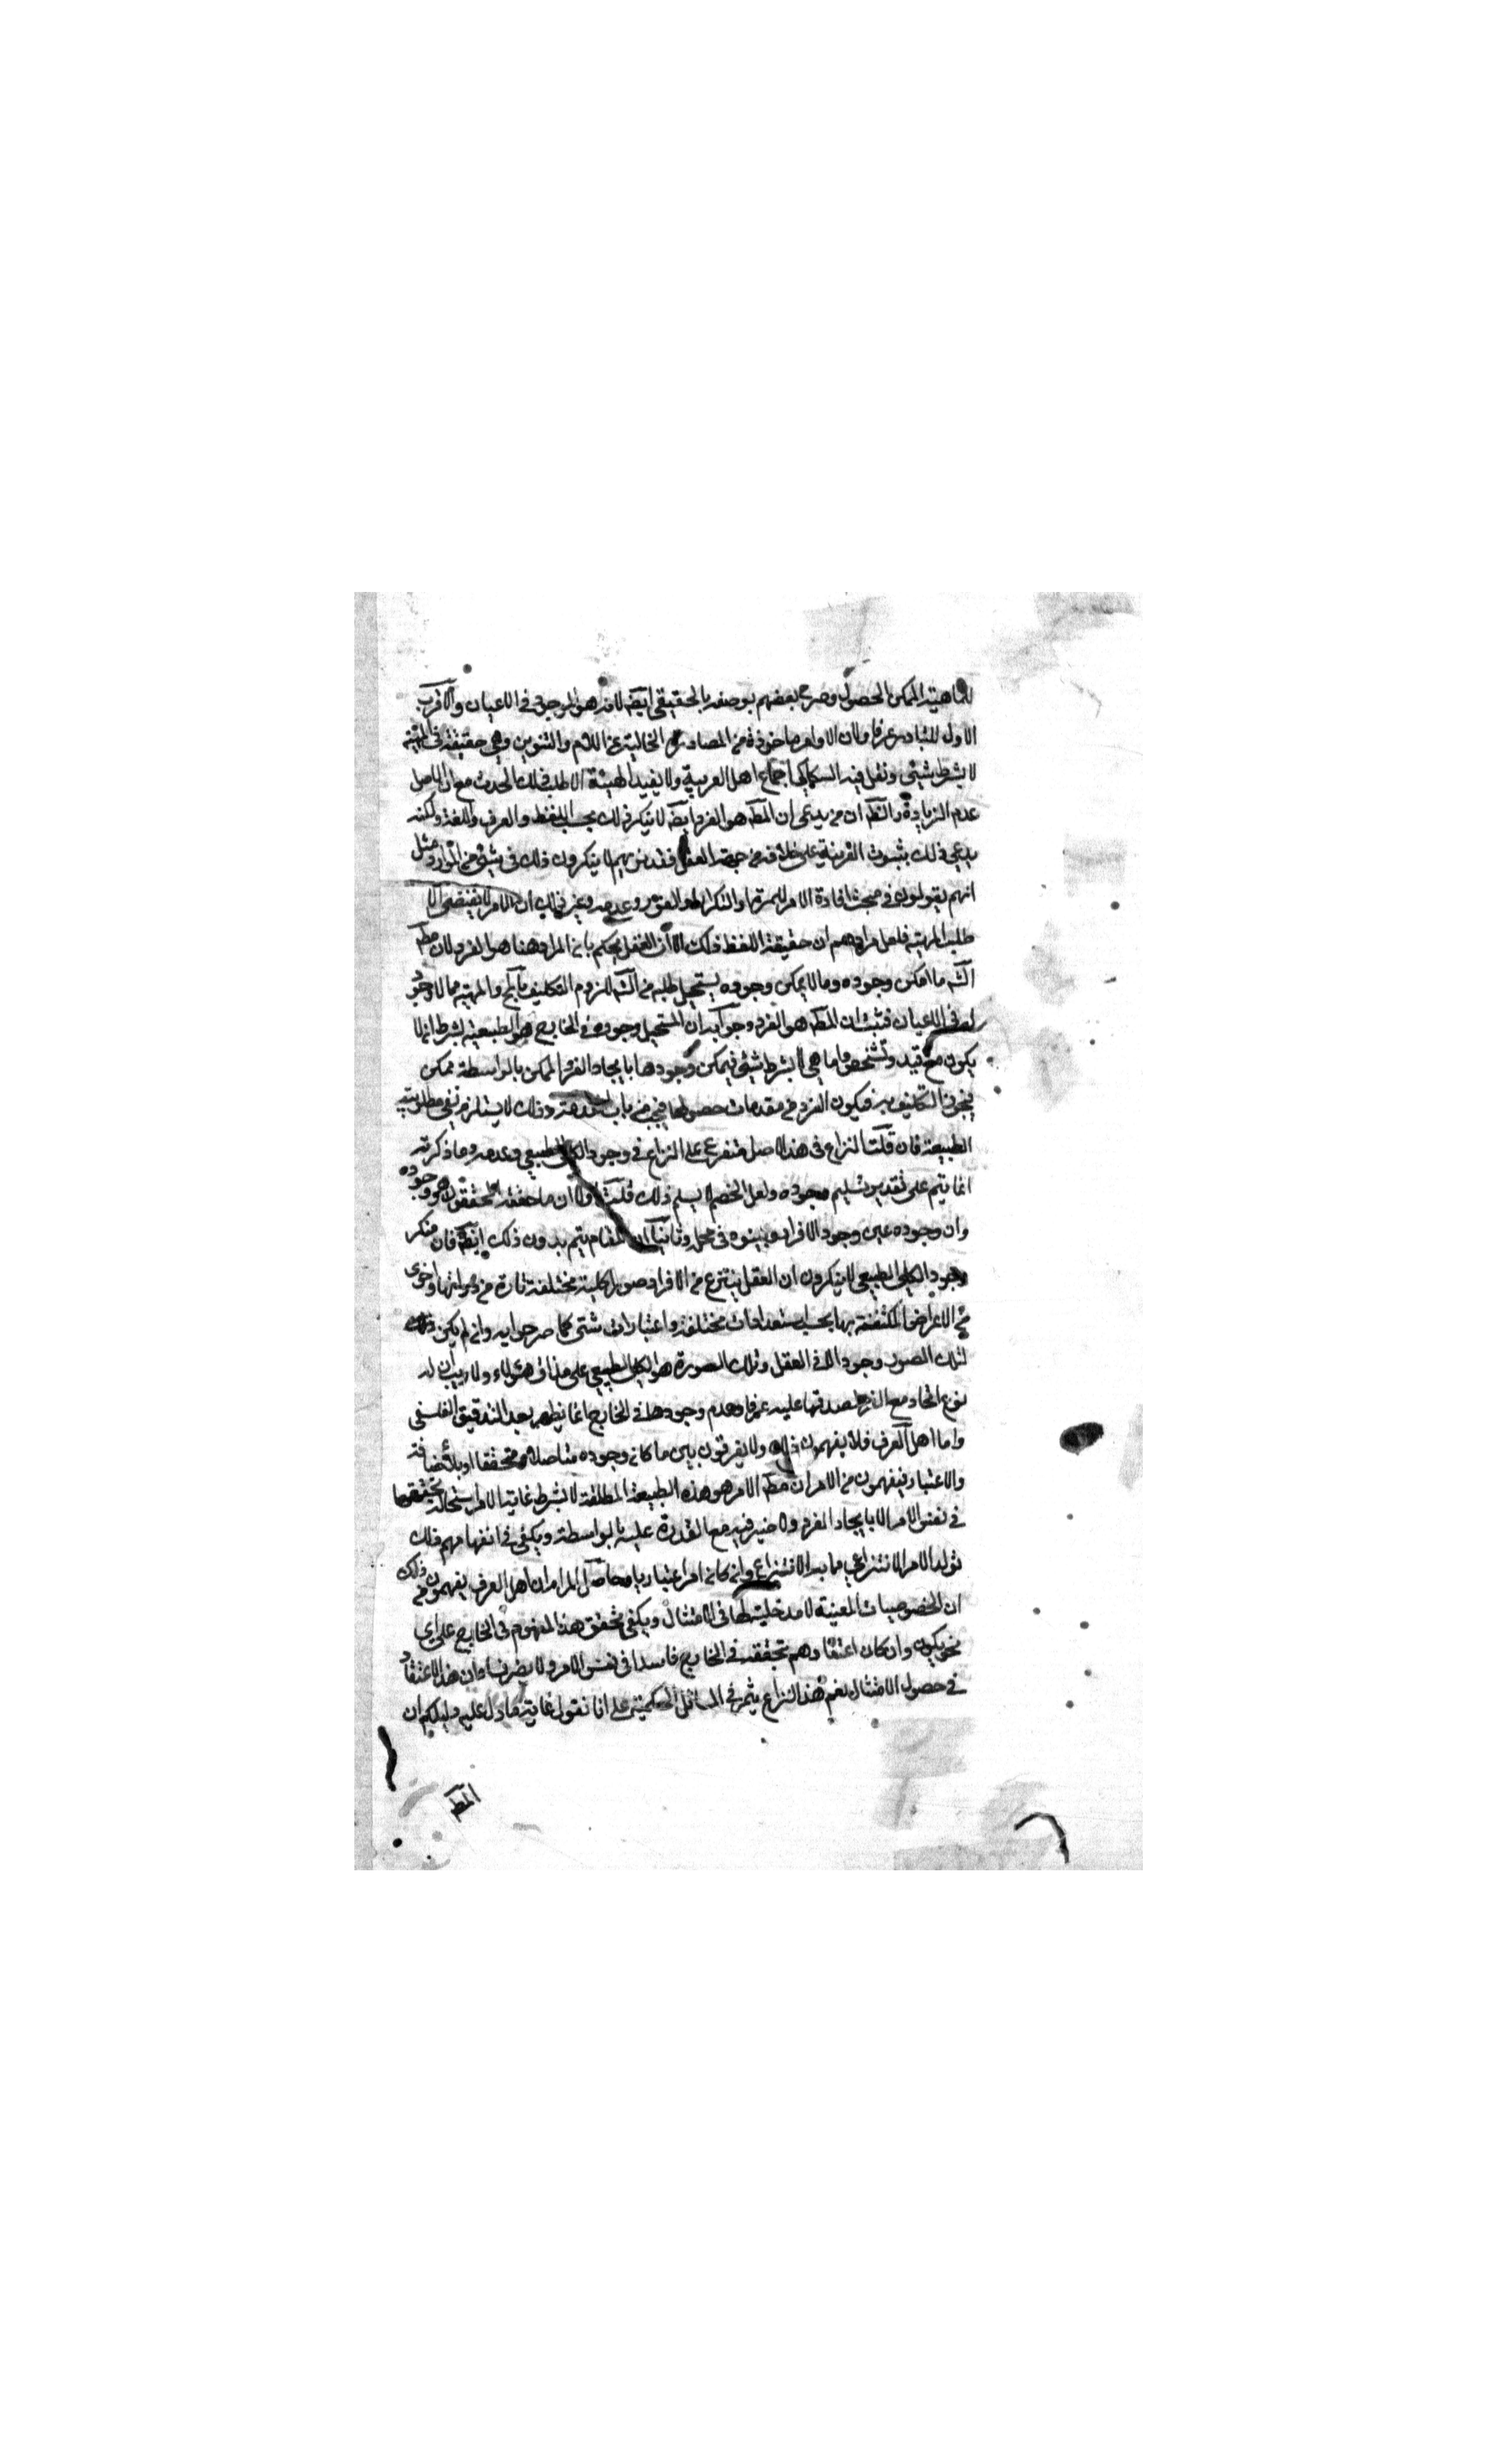 للماهية الممكن الحصول وصرح بعضهم بوصفه بالحقيقي ايضه لانه هو الموجود في الاعيان والاقرب
الاول للتبادر عرفا ولان الاوامر ماخوذة من المصادر الخالية عن اللام والتنوين وهي حقيقة في المهيّة
لا بشرط شيئ ونقل فيه السكاكي اجماع اهل العربية ولا يفيد الهيئة الا طلب ذلك الحدث مع ان الاصل
عدم الزيادة والظ ان من يدعى ان المط هو الفرد ايضه لا ينكر ذلك بحسب اللفظ والعرف واللغة ولكنه
يدعي ذلك بثبوت القرينة على خلافه من جهة العقل فقد نريهم لا ينكرون ذلك في شيئ من الموارد مثل
انهم يقولون في مبحث افادة الامر للمرة او التكرار والفور وعدمه وغير ذلك ان الامر لا يقتضى الا
طلب المهية فلعل مرادهم ان حقيقة اللفظ ذلك الا ان العقل يحكم بان المراد هنا هو الفرد لان مط
الشه ما امكن وجوده وما لا يمكن وجوده يستحيل طلبه من الشه للزوم التكليف بالمح والمهية مما لا وجود
له في الاعيان فثبت ان المط هو الفرد وجوابه ان المستحيل وجوده في الخارج هو الطبيعية بشرط ان لا
يكون مع قيد وتشخص واما هي لا بشرط شيئ فيمكن وجودها بايجاد الفرد والممكن بالواسطة ممكن
فيجوز التكليف به فيكون الفرد من مقدمات حصولها فيجب من باب المقدمة وذلك لا يستلزم نفي مطلوبية
الطبيعة فان قلت النزاع في هذا الاصل متفرع على النزاع في وجود الكلي الطبيعي وعدمه وما ذكرته
انما يتم على تقدير تسليم وجوده ولعل الخصم لا يسلم ذلك قلت اولا ان ما حققه المحققون هو وجوده
وان وجوده عين وجود الافراد وبينوه في محله وثانيا ان المقام يتم بدون ذلك ايضه فان منكر
وجود الكلي الطبيعي لا ينكرون ان العقل ينتزع من الافراد صورا كلية مختلفة تارة من ذواتها واخرى
من الاعراض المكتنفة بها بحسب استعدادات مختلفة واعتبارات شتى كما صرحوا به وان لم يكن
لتلك الصور وجود الا في العقل وتلك الصورة هو الكلي الطبيعي على مذاق هؤلاء ولا ريب ان له
نوع اتحاد مع الفرد لصدقها عليه عرفا وعدم وجودها في الخارج انما يظهر بعد التدقيق الفلسفي
واما اهل العرف فلا يفهمون ذلك ولا يفرقون بين ما كان وجوده متاصلا متحققا او بالاضافة
والاعتبار فيفهمون من الامر ان مط الامر هو هذه الطبيعة المطلقة لا بشرط غاية الامر استحالة تحققها
في نفس الامر الا بايجاد الفرد ولا ضير فيه مع القدرة عليه بالواسطة ويكفى في انفهامهم ذلك
تولد الامر الانتزاعي مما به الانتزاع وان كان امرا اعتباريا محاصل المرام ان اهل العرف يفهمون من ذلك
ان الخصوصيات المعينة لا مدخلية لها في الامتثال ويكفى تحقق هذا المفهوم في الخارج على اي
نحو يكون وان كان اعتقادهم تحققه في الخارج فاسدا في نفس الامر ولا يضر فساد ان هذا الاعتقاد
في حصول الامتثال نعم هذا النزاع يثمر في المسائل الحكمية على انا نقول غاية ما دل عليه دليلكم ان
المط